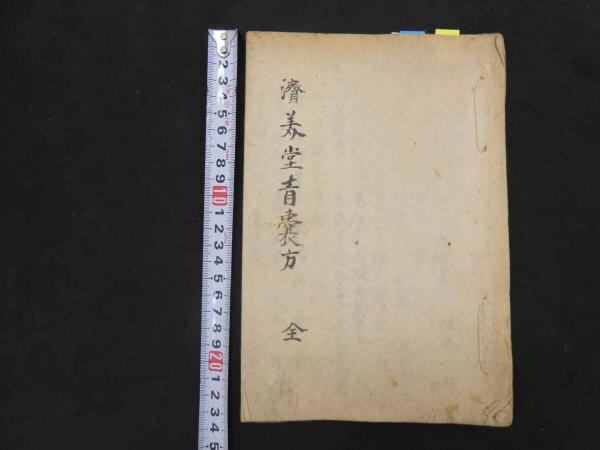 濟美堂青嚢方 全
2
3
4
5
6
7
8
9
10
1
2
3
4
5
6
7
8
9
20
1
2
3
4
5